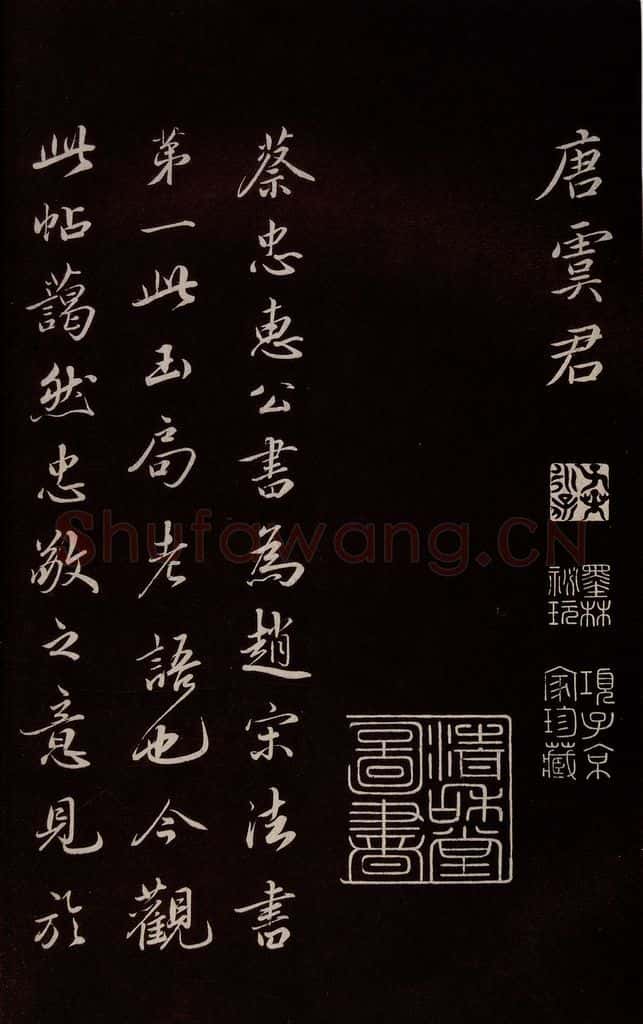 唐虞君
墨林
祕玩
項子京
家珍藏
蔡忠惠公書為趙宋法書
第一此玉局老語也今觀
此帖藹然忠敬之意見於
Shufawang.CN